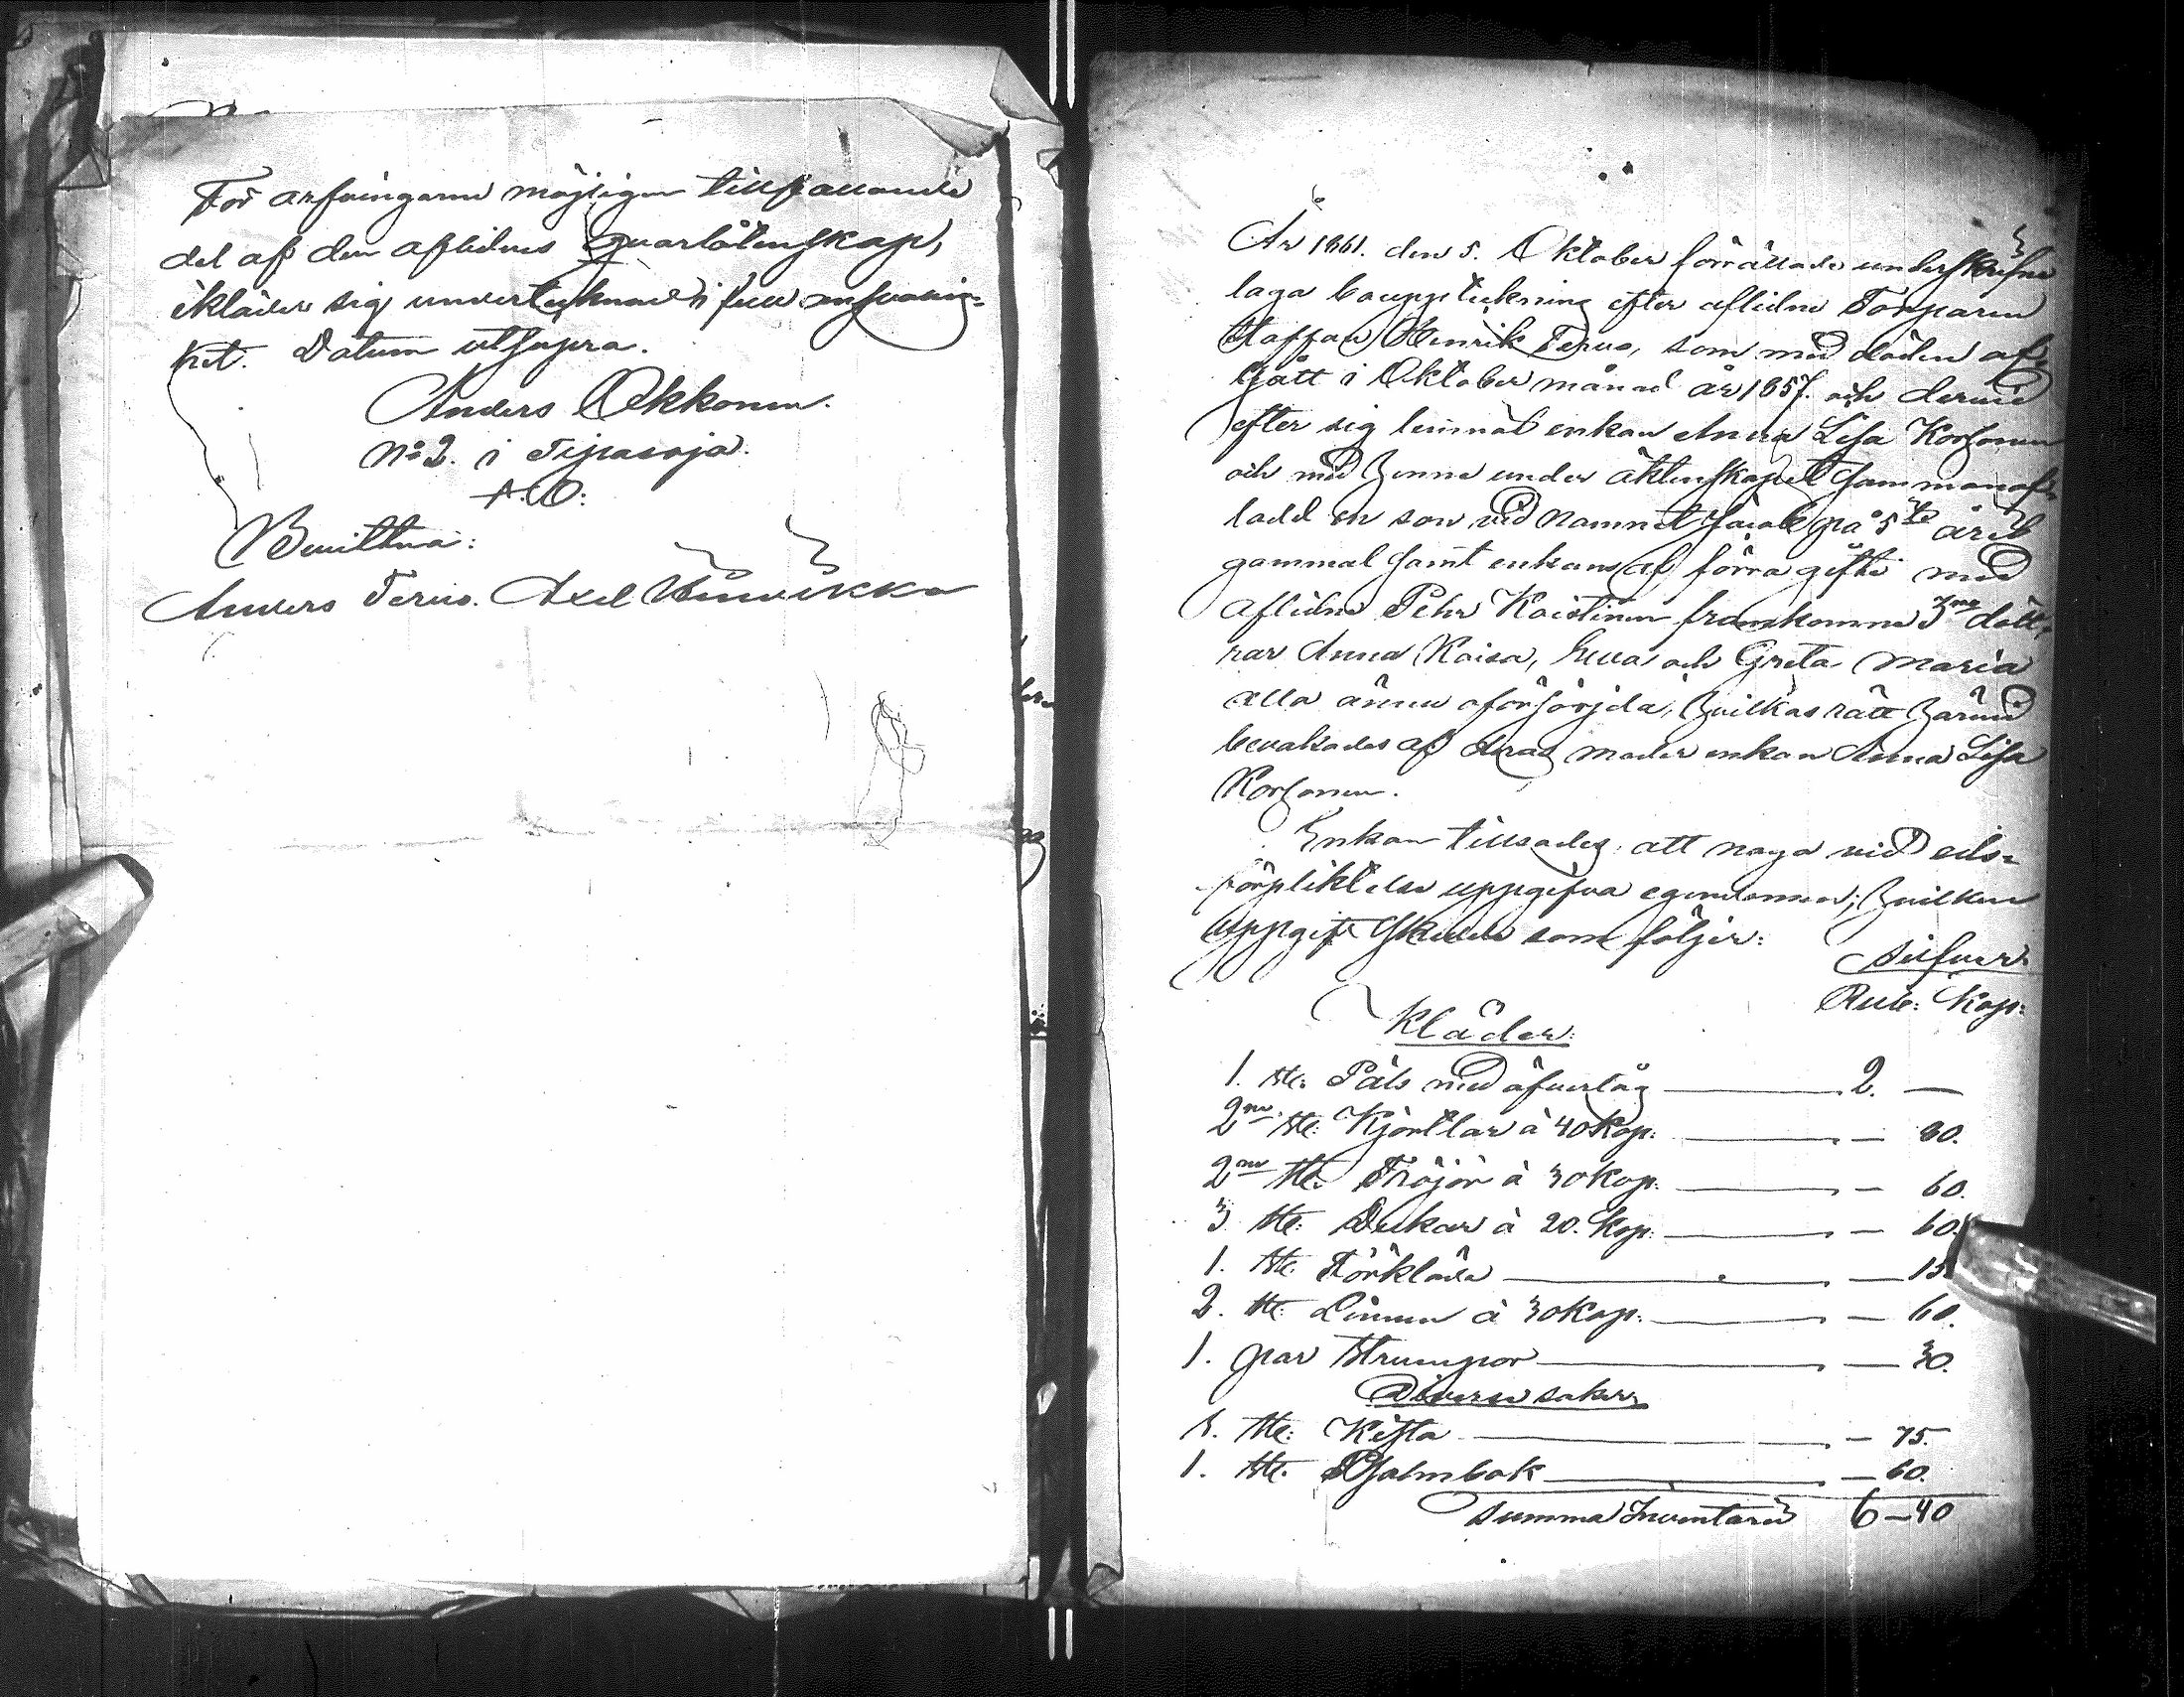 För arfvingarne möjligen tillfallande
del af den aflidnes qvarlåtenskap,
ikläder sig undertecknad i full ansvarig-
het. Datum utsupra.
Anders Okkonen.
No 2. i Tipasoja.
A. O.
Bevittna:
Anders Tervo. Axel
År 1861. den 5. Oktober förrättade underskrifne
laga bouppteckning efter aflidne Torparen
Staffan Henrik Tervo, som med döden af-
gått i Oktober månad år 1857. och dervid
efter sig lemnat enkan Anna Lisa Korhonen
och med henne under äktenskapet sammanaf-
lad en son vid namnet Jacob på 5te året
gammal samt enkans af förra gifte med
aflidne Pehr Kaistinen framkomne 3ne dött-
rar Anna Kaisa, Eeva och Greta Maria
alla ännu oförsörjda, hvilkas rätt härvid
bevakades af deras moder enkan Anna Lisa
Korhonen.
Enkan tillsades att noga vid eds-
förpliktelse uppgifva egendomen; hvilken
uppgift skedde som följer:
Silfver
Rub: Kop:
Kläder:
1. st: Päls med öfvertåg 2. —
2ne st: Kjortlar à 40 Kop: — 80.
2ne st: Tröjor à 30 Kop: — 60.
3 st: Dukar à 20. Kop: — 60.
1. st: Förkläde — 15
2. st: Linnen à 30 Kop: — 60.
1. par Strumpor — 30.
Diverse saker
1. st: Kista — 75.
1. st: Psalmbok — 60.
Summa Inventarii 6 — 40